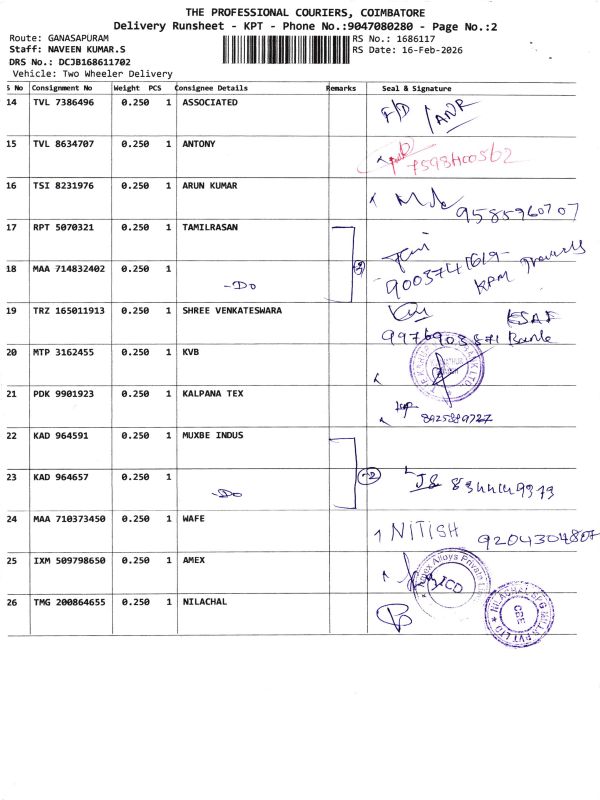 THE PROFESSIONAL COURIERS, COIMBATORE
Delivery Runsheet - KPT - Phone No.:9047080280 - Page No.:2
Route: GANASAPURAM
RS No.: 1686117
Staff: NAVEEN KUMAR.S
RS Date: 16-Feb-2026
DRS No.: DCJB168611702
Vehicle: Two Wheeler Delivery
S No Consignment No Weight PCS Consignee Details Remarks Seal & Signature
14 TVL 7386496 0.250 1 ASSOCIATED
15 TVL 8634707 0.250 1 ANTONY
16 TSI 8231976 0.250 1 ARUN KUMAR 9585960707
17 RPT 5070321 0.250 1 TAMILRASAN
18 MAA 714832402 0.250 1 -Do 9003741619- KPM Travels
19 TRZ 165011913 0.250 1 SHREE VENKATESWARA
Bank
20 MTP 3162455 0.250 1 KVB
21 PDK 9901923 0.250 1 KALPANA TEX
22 KAD 964591 0.250 1 MUXBE INDUS
23 KAD 964657 0.250 1 -Do -2
24 MAA 710373450 0.250 1 WAFE NITISH
25 IXM 509798650 0.250 1 AMEX
26 TMG 200864655 0.250 1 NILACHAL